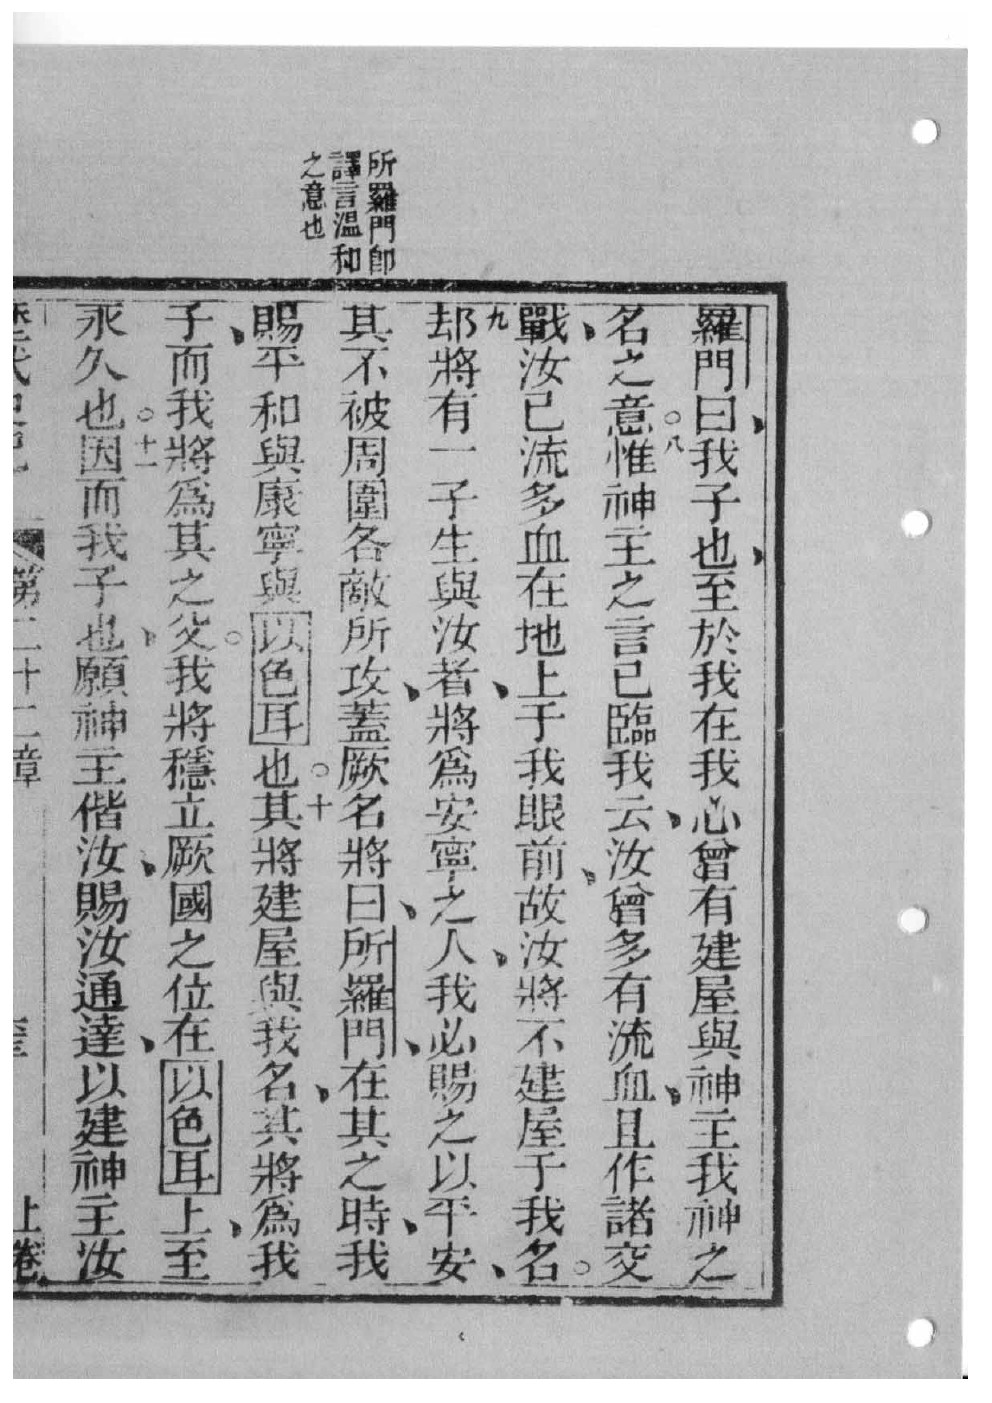 所羅門即
譯言溫和
之意也
羅門曰我子也至於我在我心曾有建屋與神主我神之
名之意八惟神主之言已臨我云汝曾多有流血且作諸交
戰汝已流多血在地上于我眼前故汝將不建屋于我名
九却將有一子生與汝者將爲安寧之人我必賜之以平安
其不被周圍各敵所攻蓋厥名將曰所羅門在其之時我
賜平和與康寧與以色耳也十其將建屋與我名其將爲我
子而我將爲其之父我將穩立厥國之位在以色耳上至
永久也十一因而我子也願神主偕汝賜汝通達以建神主汝
第二十二章
上卷